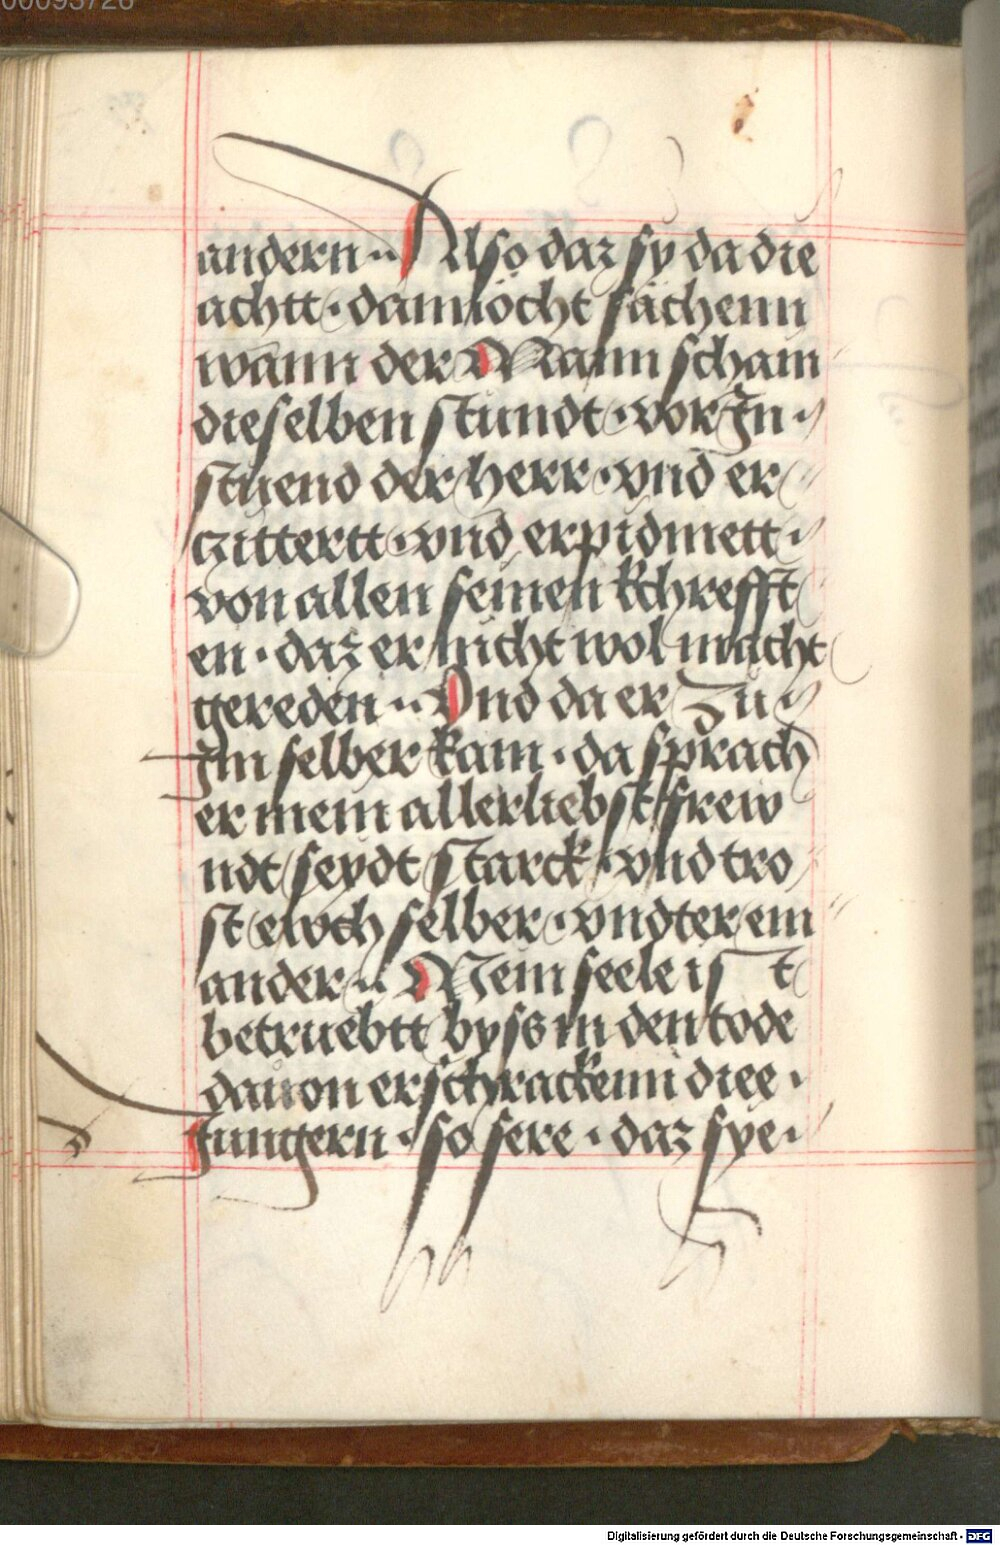 andern ·· Also daz sy da die
achtt · dannocht sachenn
wann der Mann schain
dieselben stundt · vor Jn ·
stuend der herr · vnd er
czittertt · vnd erpidmett ·
von allen seinen kchrefft
en · daz er nicht wol macht
gereden ·· Vnd da er Zu
Jm selber kam · da sprach
er mein allerliebst frew
ndt seydt starck · vnd tro
st ewch selber · vndter ein
ander ·· Mein seele is t
betruebtt byss in den tode
dauon erschrackenn die e ·
Jungern · so sere · daz sye ·
Digitalisierung gefördert durch die Deutsche Forschungsgemeinschaft - DFG